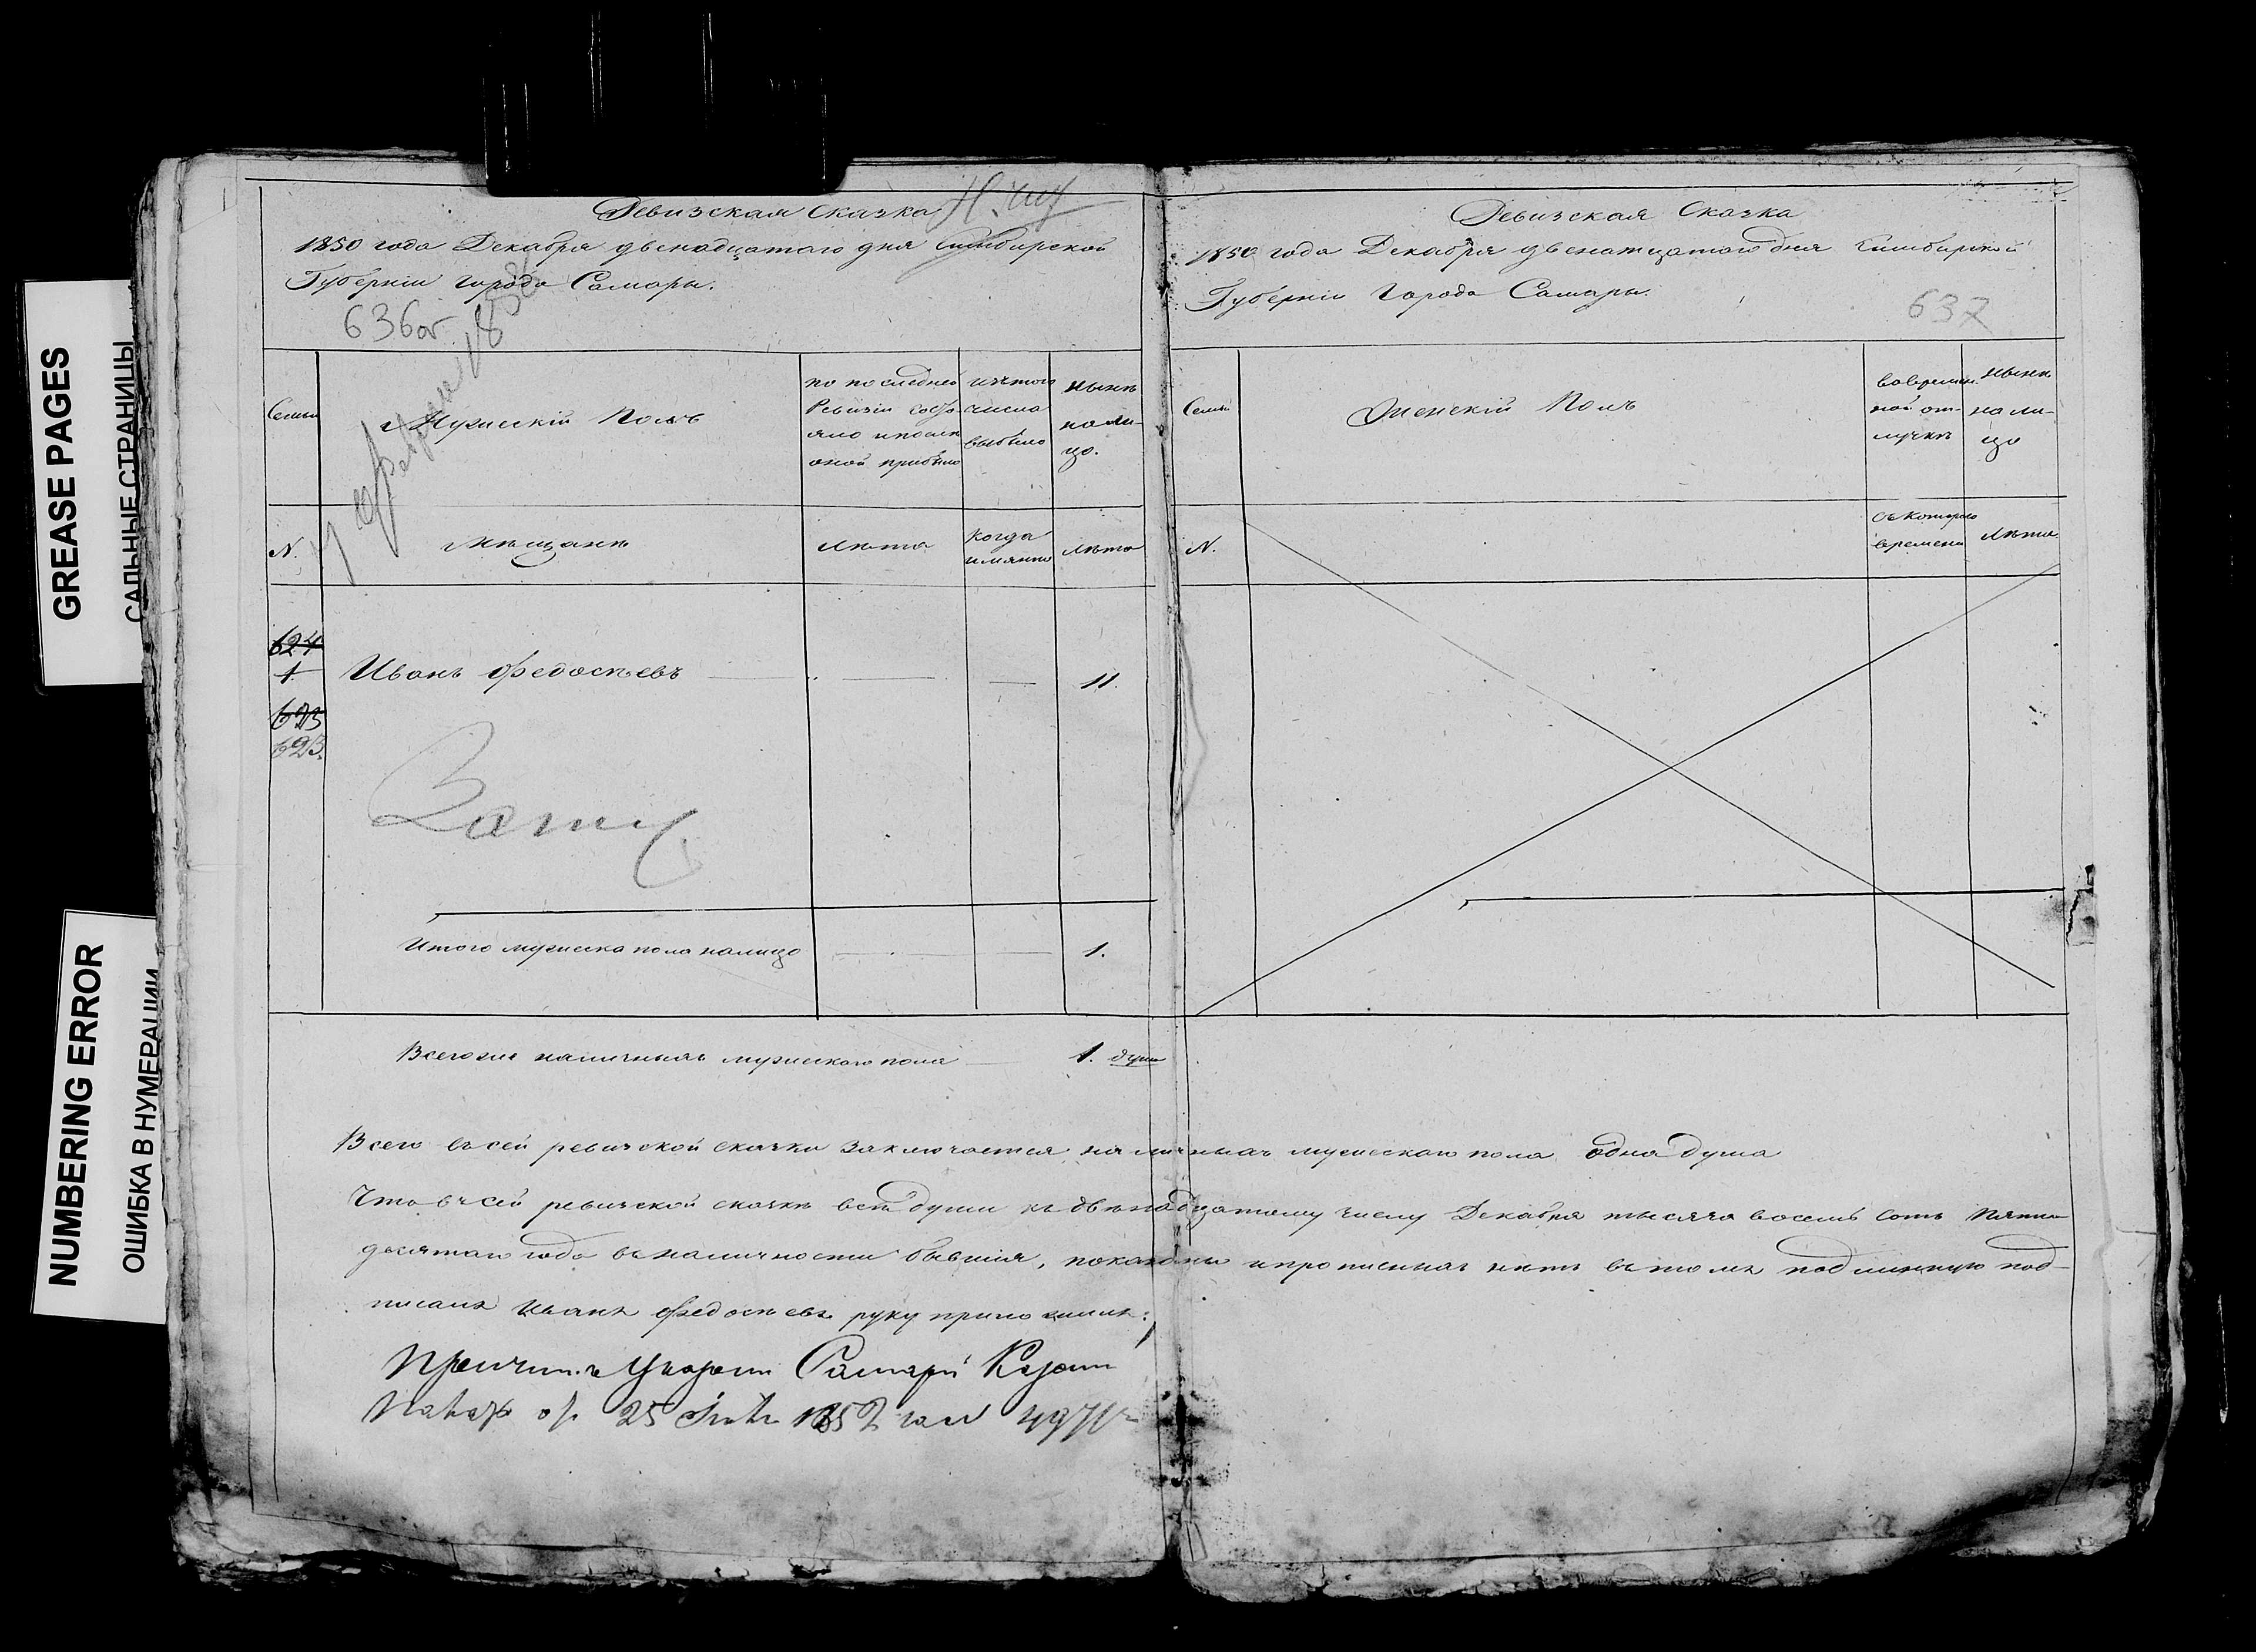 GREASE PAGES
САЛЬНЫЕ СТРАНИЦЫ
NUMBERING ERROR
ОШИБКА В НУМЕРАЦИИ
Ревизская Сказка
1850 года Декабря двенадцатого дня Симбирской
Губернии города Самары.
636об
Семьи
Мужескій Полъ
по последней Ревизіи состояло и после оной прибыло
изътого числа выбыло
ныне налицо.
N.
Мѣщане
Лѣта
когда имянно
Лѣта
624
1.
Иванъ Федосѣевъ
11.
623
Итого мужеска пола налицо
1.
Всегоже наличныхъ мужескаго пола 1. душа
Ревизская Сказка
1850 года Декабря двенатцатого дня Симбирской
Губерніи Города Самары.
637
Семьи
Женскій Полъ
вовременной отлучкѣ
Нынѣ налицо
N.
съкотораго времени
Лѣта
Всего въсей ревизской сказки заключается наличныхъ мужескаго пола одна душа
Что въсей ревизской сказке все души къ двенадцатому числу Декабря тысяча восемь сотъ Пяти
десятаго года въ наличности бывшія, показаны и прописныхъ нетъ въ томъ подлинную под-
писалъ Иванъ Федосѣевъ руку приложилъ:
25 1852 года